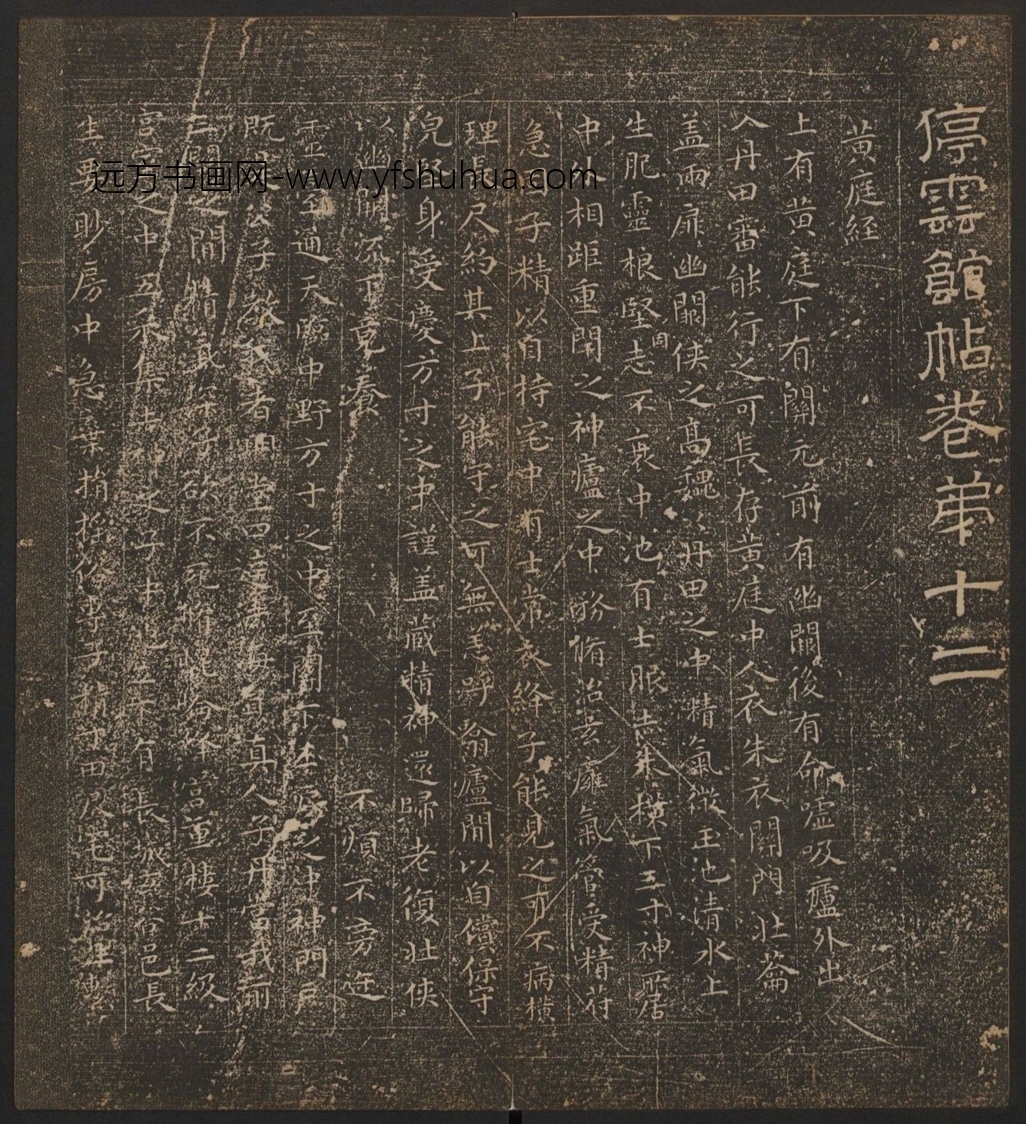 停雲館帖卷第十二
黃庭經
上有黃庭下有關元前有幽闕後有命噓吸廬外出
入丹田審能行之可長存黃庭中人衣朱衣關門壯蘥
蓋兩扉幽闕俠之高巍巍丹田之中精氣微玉池清水上
生肥靈根堅固志不衰中池有士服赤朱橫下三寸神所居
中外相距重閉之神廬之中務脩治玄廱氣管受精符
急固子精以自持宅中有士常衣絳子能見之可不病橫
理長尺約其上子能守之可無恙呼翕廬間以自償保守
完堅身受慶方寸之中謹蓋藏精神還歸老復壯俠
以幽闕流下竟養 不煩不旁迕
靈臺通天臨中野方寸之中至關下玉房之中神門戶
既是公子教我者明堂四達法海員真人子丹當我前
三關之間精氣深子欲不死脩崑崙絳宮重樓十二級
宮室之中五采集赤神之子中池立下有長城玄谷邑長
生要眇房中急棄捐俗專子精寸田尺宅可治生繫
远方书画网-www.yfshuhua.com